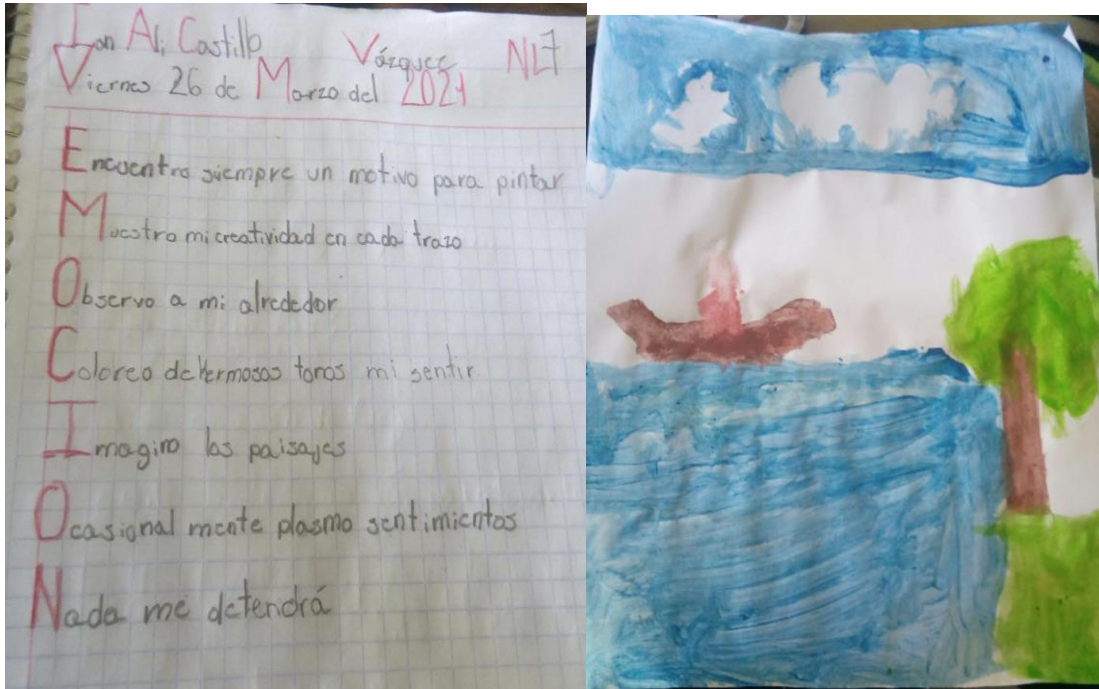 Ian Ali Castillo Vázquez NL7
Viernes 26 de Marzo del 2021
Encuentro siempre un motivo para pintar
Muestro mi creatividad en cada trazo
Observo a mi alrededor
Coloreo de hermosos tonos mi sentir
Imagino los paisajes
Ocasional mente plasmo sentimientos
Nada me detendrá